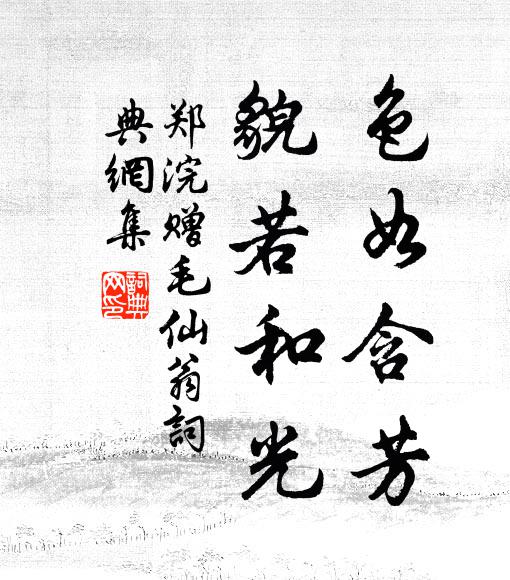 色如含芳
貌若和光
郑浣赠毛仙翁詞
典網集
詞典网印